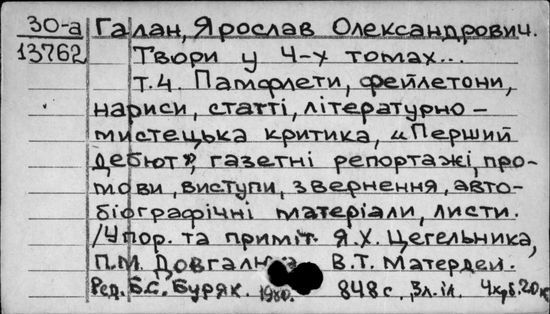 30-а Галан, Ярослав Олександрович.
13762 Твори у 4-х томах...
т.4. Памфлети, фейлетони,
нариси, статті, літературно-
мистецька критика, «Перший
дебют», газетні репортажі, про-
мови, виступи, звернення, авто-
біографічні матеріали, листи.
/Упор. та приміт. Я.Х. Цегельника,
П.М. В.Т. Матердей.
Ред. Б.С. Буряк. 1980. 848 с., Зл. іл. 20к